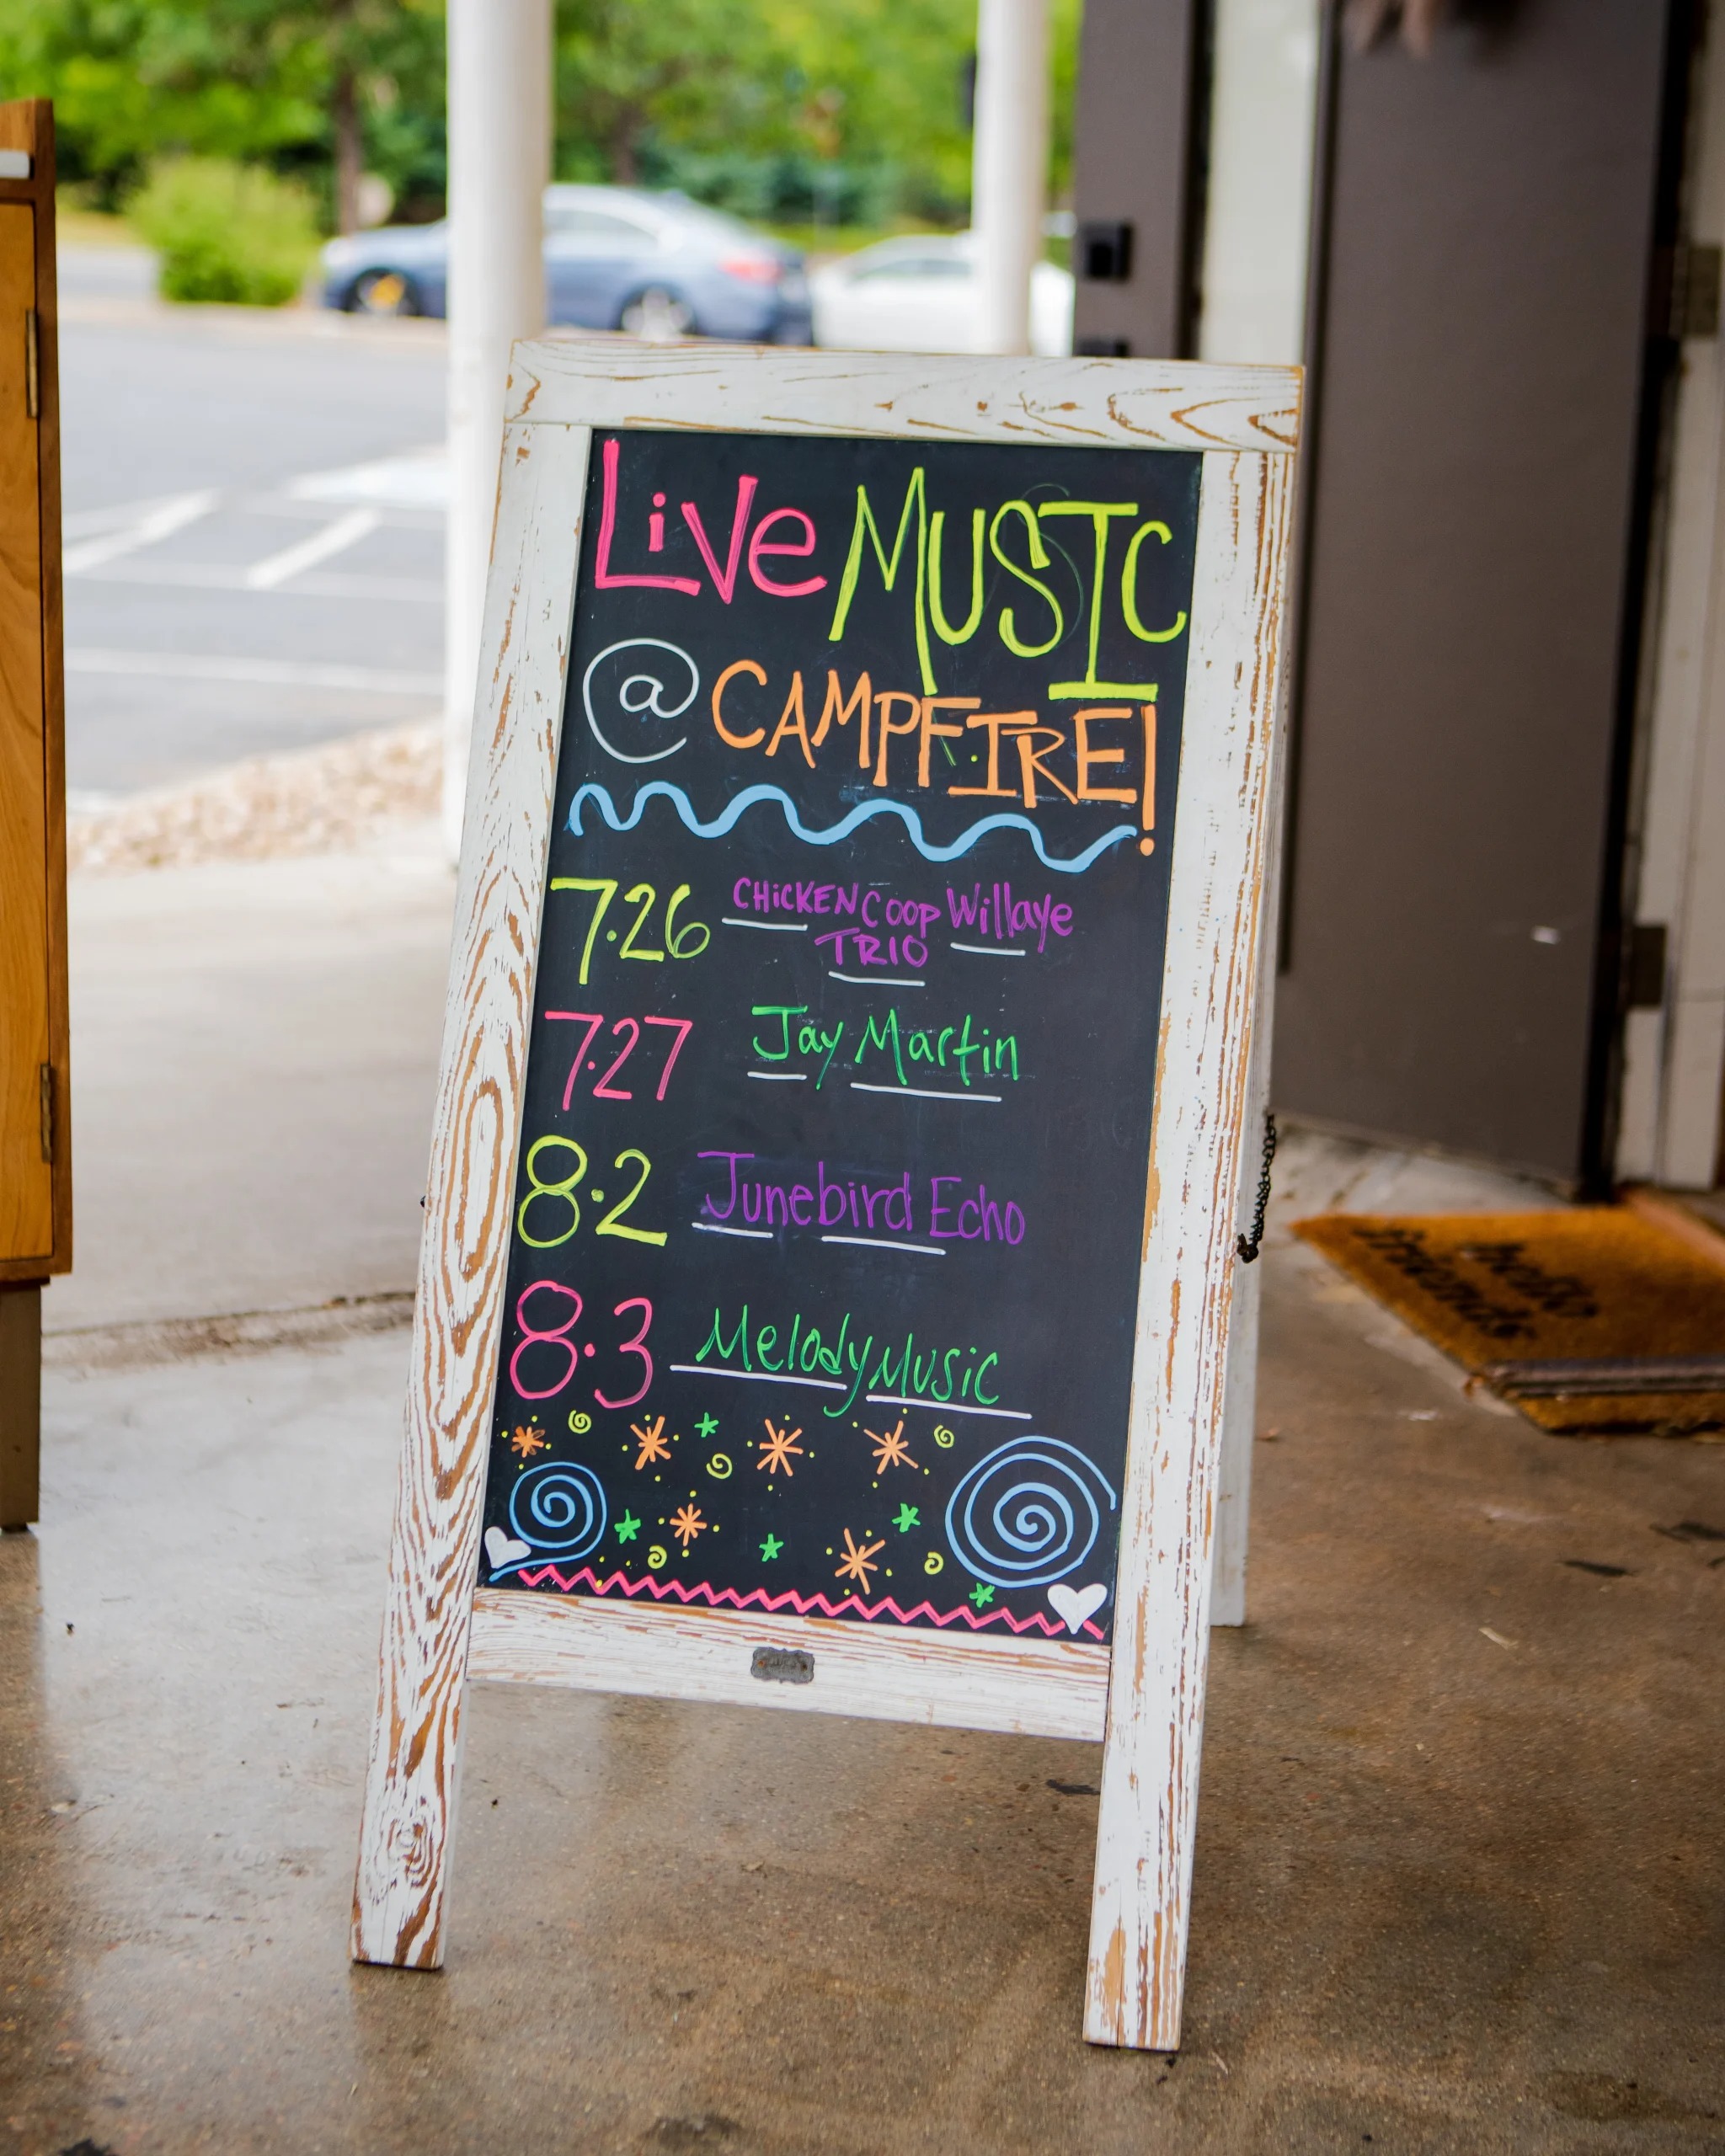 Live MUSIC
@ CAMPFIRE!
7.26 CHiCKEN COOP Willaye
TRIO
7.27 Jay Martin
8.2 Junebird Echo
8.3 Melody Music
hello
friends